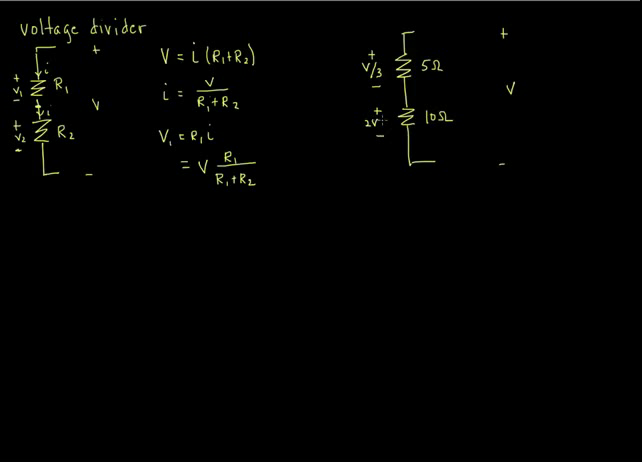 voltage divider
+
i
+
V₁
-
R₁
V
i
+
V₂
-
R₂
-
V = i (R₁+R₂)
i = V / R₁+R₂
V₁ = R₁ i
= V R₁ / R₁+R₂
+
+
V/3
-
5Ω
V
+
2V
-
10Ω
-